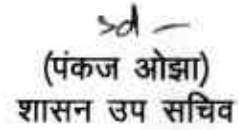 sd -
(पंकज ओझा)
शासन उप सचिव